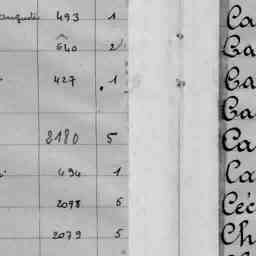 493 1 Ca
540 2 Ca
427 1 Ca
Ca
2180 5 Ca
494 1 Ca
2098 5 Céc
2079 5 Ch